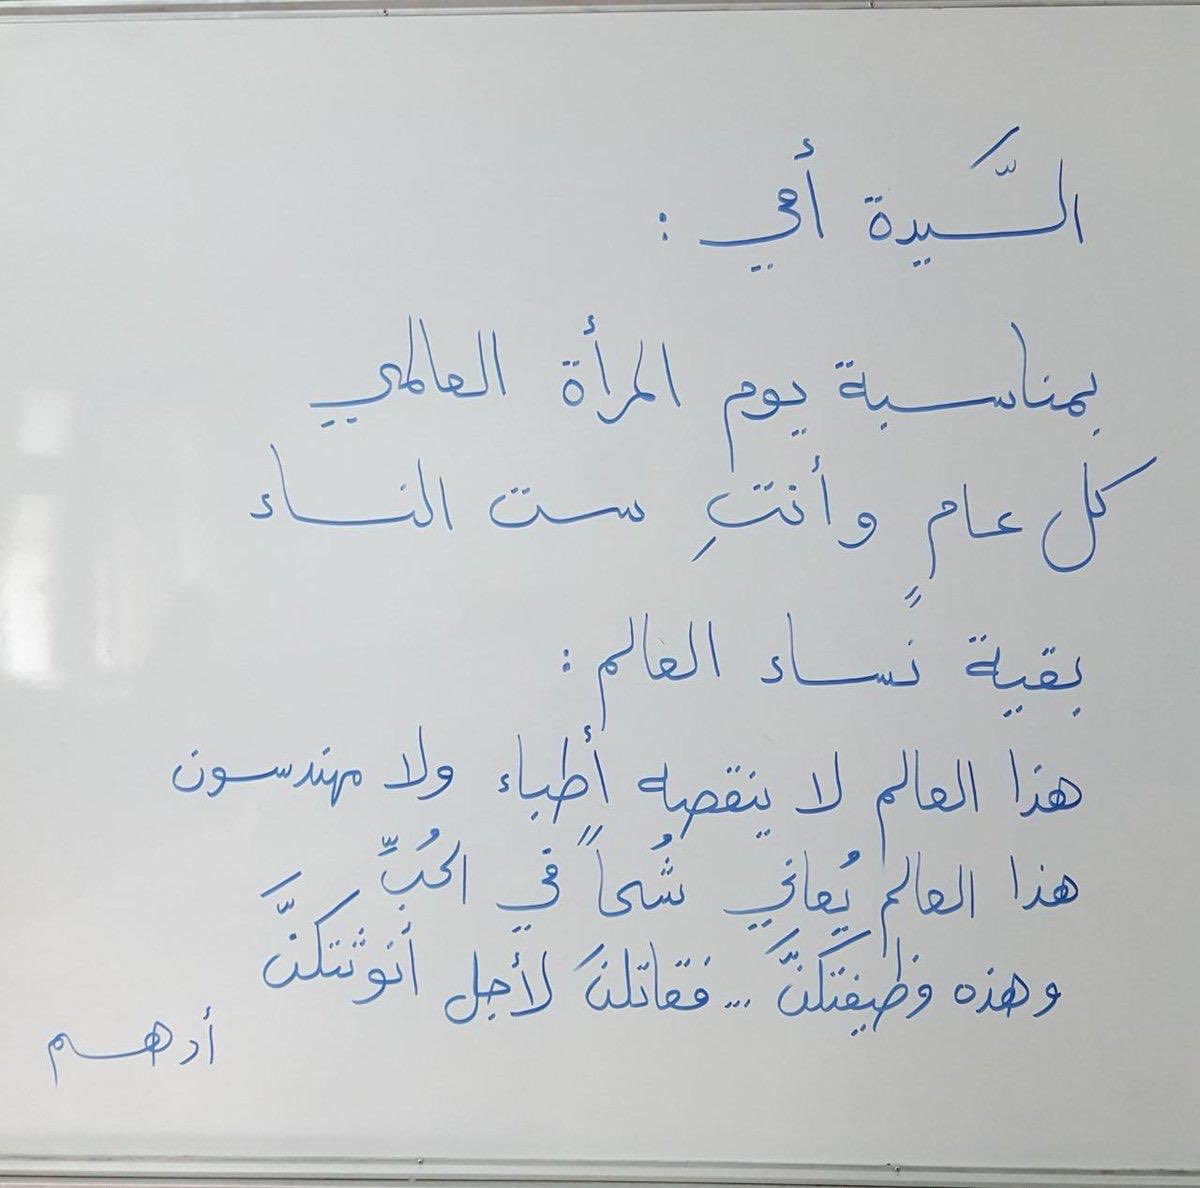 السَّيدة أمي :
بمناسبة يوم المرأة العالمي
كل عامٍ وأنتِ ست النساء
بقية نساء العالم :
هذا العالم لا ينقصه أطباء ولا مهندسون
هذا العالم يُعاني شُحاً في الحُبِّ
وهذه وظيفتكنَّ ... فقاتلنَ لأجل أنوثتكنَّ
أدهم